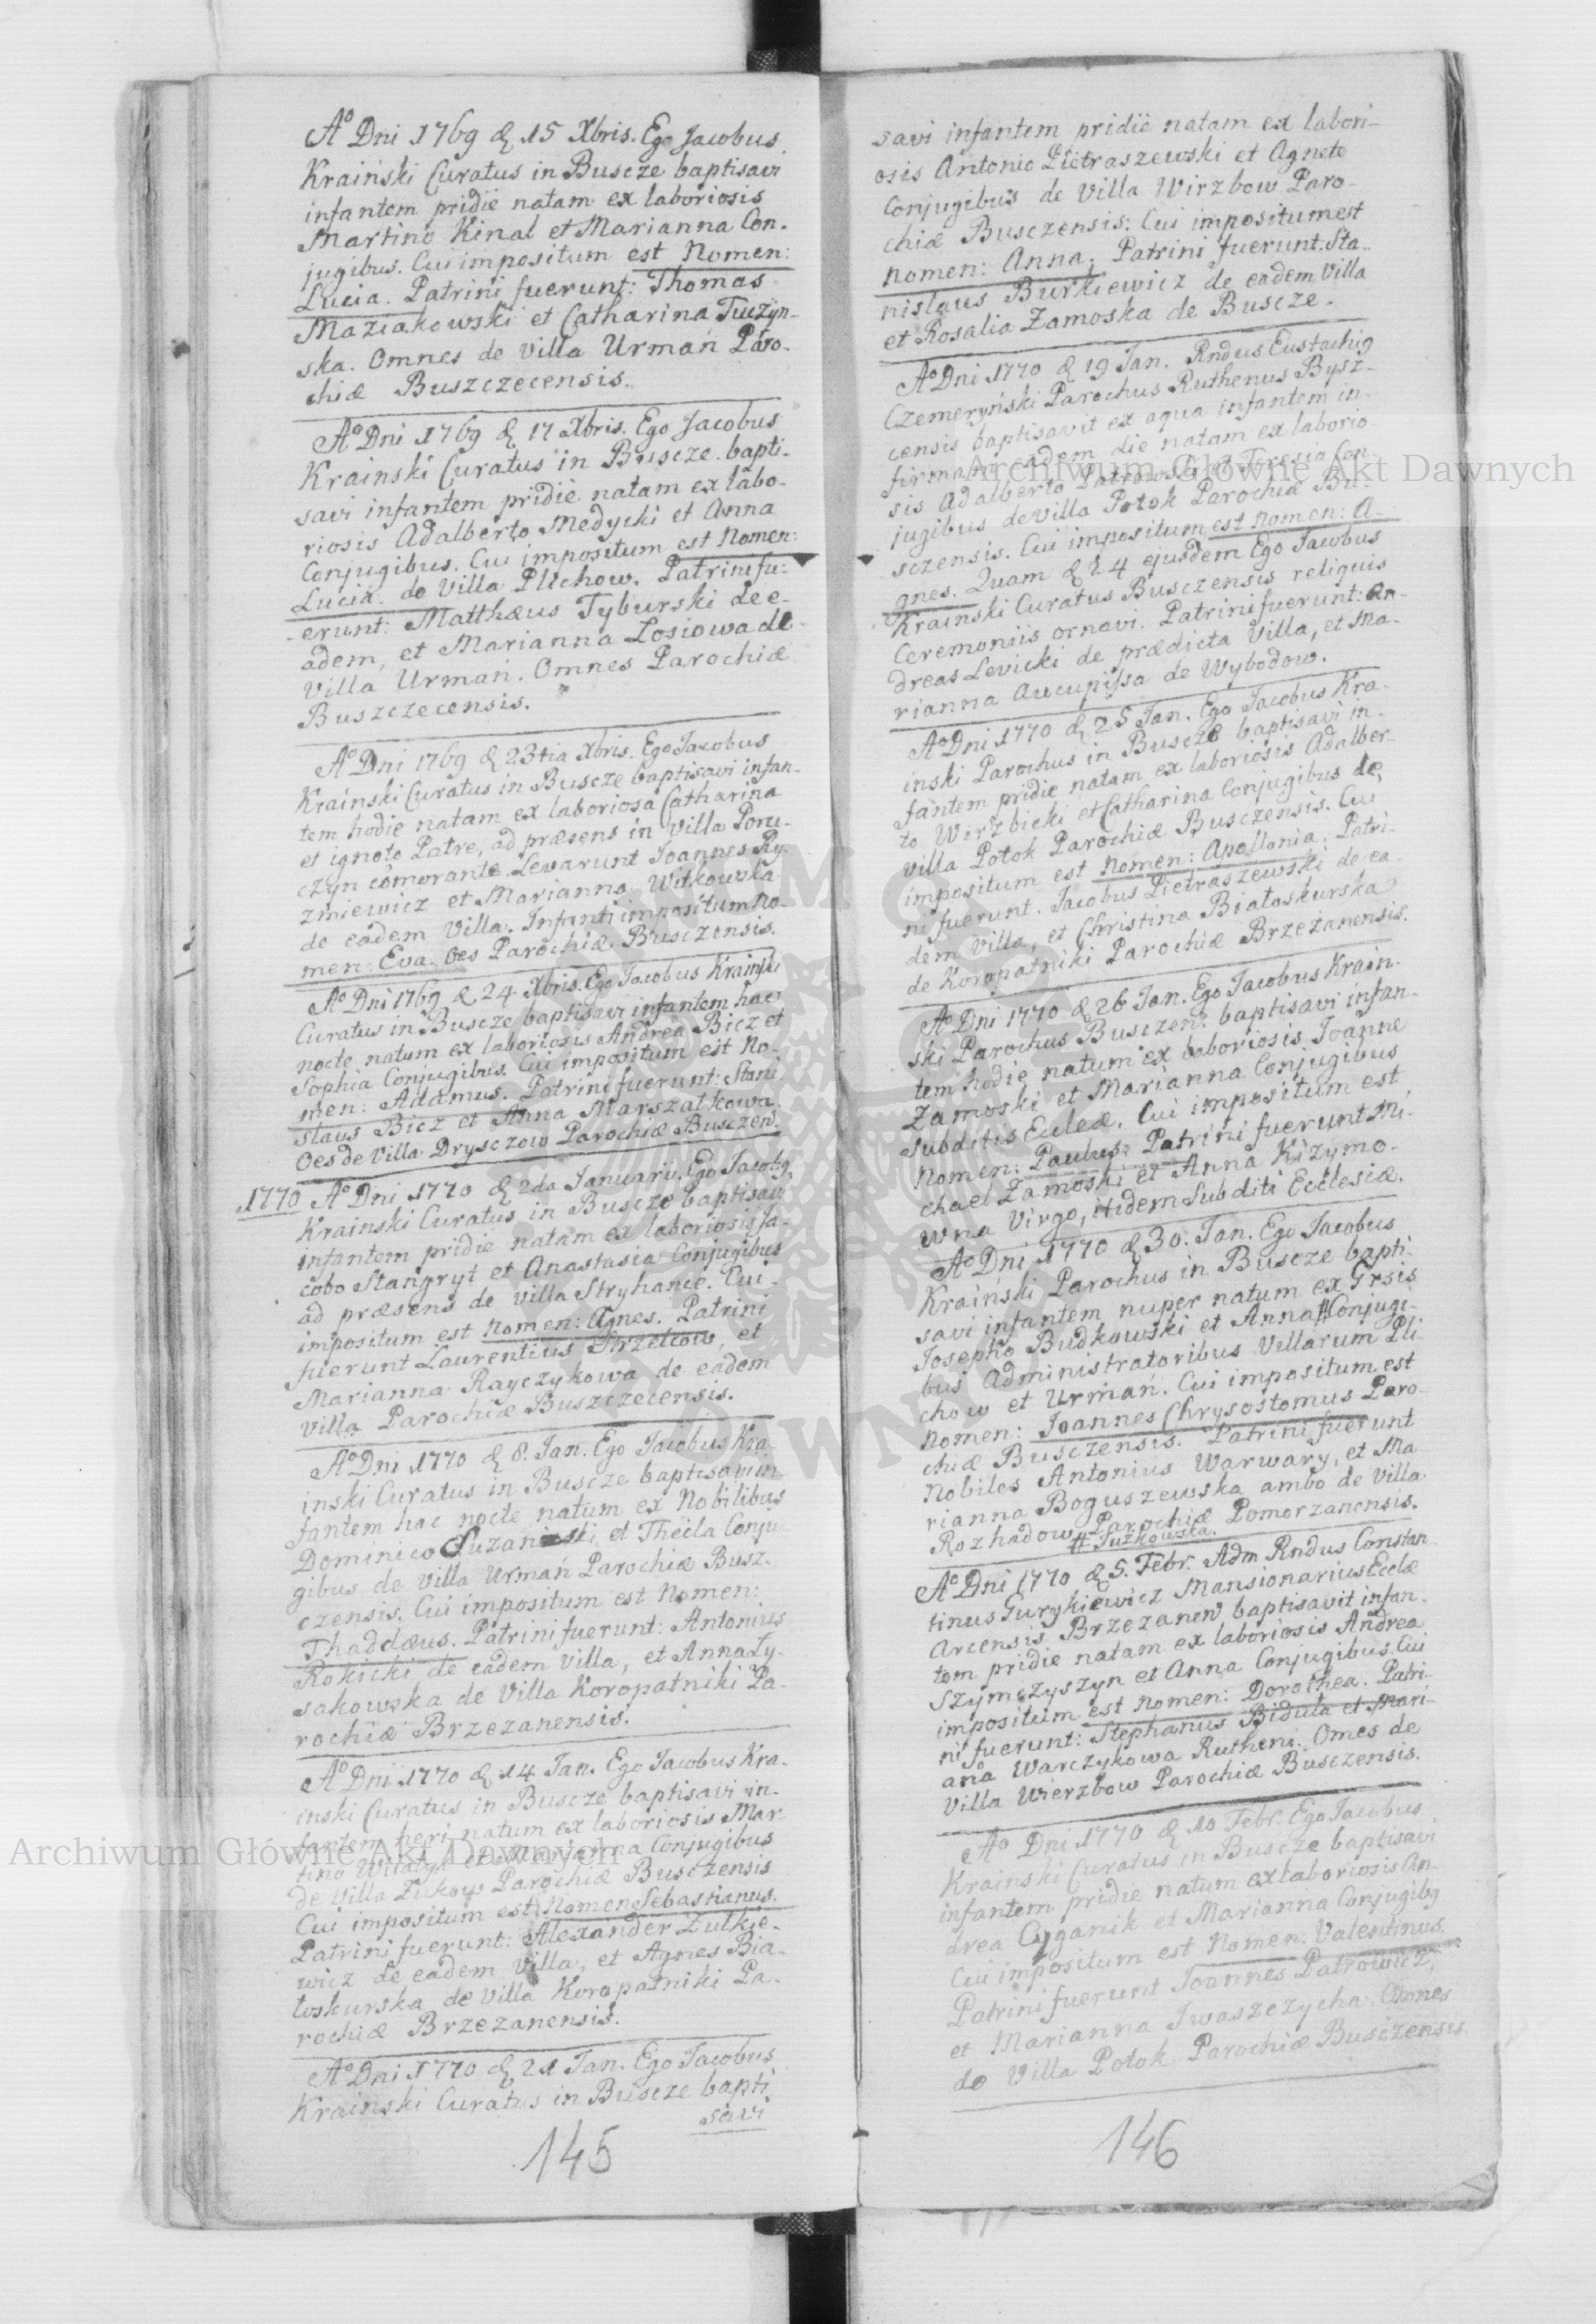 Aº Dni 1769 d. 15 Xbris. Ego Jacobus
Kraiński Curatus in Buscze baptisavi
infantem pridie natam ex laboriosis
Martino Kinal et Marianna Con-
jugibus. Cui impositum est Nomen:
Lucia. Patrini fuerunt: Thomas
Maziakowski et Catharina Tuczyn-
ska. Omnes de Villa Urmań Paro-
chiæ Buszczecensis.
Aº Dni 1769 d. 17 Xbris. Ego Jacobus
Krainski Curatus in Buscze bapti-
savi infantem pridie natam ex labo-
riosis Adalberto Medycki et Anna
Conjugibus. Cui impositum est Nomen:
Lucia. de Villa Plichow. Patrini fu-
erunt: Matthæus Tyburski de e-
adem, et Marianna Losiowa de
Villa Urmań. Omnes Parochiæ
Buszczecensis.
Aº Dni 1769 d. 23tia Xbris. Ego Jacobus
Krainski Curatus in Buscze baptisavi infan-
tem hodie natam ex laboriosa Catharina
et ignoto Patre, ad præsens in Villa Poru-
czyn cômorante. Levarunt Joannes Ry-
zniewicz et Marianna Witkowska
de eadem Villa. Infanti impositum No-
men: Eva. Oes Parochiæ Busczensis.
Aº Dni 1769 d. 24 Xbris. Ego Jacobus Krainski
Curatus in Buscze baptisavi infantem hac
nocte natum ex laboriosis Andrea Bicz et
Sophia Conjugibus. Cui impositum est No-
men: Adamus. Patrini fuerunt: Stani
slaus Bicz et Anna Marszalkowa.
Oes de Villa Drysczow Parochiæ Busczen.
1770 Aº Dni 1770 d. 2da Januarii. Ego Jacobus
Krainski Curatus in Buscze baptisavi
infantem pridie natam ex laboriosis Ja-
cobo Stangryt et Anastasia Conjugibus
ad præsens de Villa Stryhance. Cui
impositum est Nomen: Agnes. Patrini
fuerunt Laurentius Strzelcow, et
Marianna Rayczykowa de eadem
Villa Parochiæ Buszczecensis.
Aº Dni 1770 d. 8. Jan. Ego Jacobus Kra-
inski Curatus in Buscze baptisavi in-
fantem hac nocte natum ex Nobilibus
Dominico Suzanski et Thecla Conju
gibus de Villa Urmań Parochiæ Busz-
czensis. Cui impositum est Nomen:
Thaddæus. Patrini fuerunt: Antonius
Rokicki de eadem Villa, et Anna Ly-
sakowska de Villa Koropatniki Pa-
rochiæ Brzezanensis.
Aº Dni 1770 d. 14 Jan. Ego Jacobus Kra-
inski Curatus in Buscze baptisavi in-
fantem heri natum ex laboriosis Mar-
tino et Marianna Conjugibus
de Villa Zukow Parochiæ Busczensis
Cui impositum est Nomen Sebastianus.
Patrini fuerunt: Alexander Zulkie-
wicz de eadem Villa, et Agnes Bia-
loskurska de Villa Koropatniki Pa-
rochiæ Brzezanensis.
Aº Dni 1770 d. 21 Jan. Ego Jacobus
Krainski Curatus in Buscze bapti
savi
145
savi infantem pridie natam ex labori-
osis Antonio Pietraszewski et Agnete
Conjugibus de Villa Wirzbow Paro-
chiæ Busczensis: Cui impositum est
Nomen: Anna. Patrini fuerunt: Sta-
nislaus Burkiewicz de eadem Villa
et Rosalia Zamoska de Buscze.
Aº Dni 1770 d. 19 Jan. Rndus Eustachius
Czemeryński Parochus Ruthenus Bysz-
censis baptisavit ex aqua infantem in-
firmam eadem die natam ex laborio
sis Adalberto et Teresia Con
jugibus de Villa Potok Parochiæ Bu-
sczensis. Cui impositum est Nomen: A-
gnes. Quam d. 24 ejusdem Ego Jacobus
Krainski Curatus Busczensis reliquis
Ceremoniis ornavi. Patrini fuerunt: An-
dreas Levicki de prædicta Villa, et Ma-
rianna Aucupissa de Wybodow.
Aº Dni 1770 d. 25 Jan. Ego Jacobus Kra-
inski Parochus in Buscze baptisavi in-
fantem pridie natam ex laboriosis Adalber-
to Wirzbicki et Catharina Conjugibus de
Villa Potok Parochiæ Busczensis. Cui
impositum est Nomen: Apollonia. Patri-
ni fuerunt. Jacobus Pietraszewski de ea-
dem Villa, et Christina Bialoskurska
de Koropatniki Parochiæ Brzezanensis.
Aº Dni 1770 d. 26 Jan. Ego Jacobus Krain-
ski Parochus Busczen. baptisavi infan-
tem hodie natum ex laboriosis Joanne
Zamoski et Marianna Conjugibus
subditis Ecclæ. Cui impositum est
Nomen: Paulus. Patrini fuerunt Mi-
chael Zamoski et Anna Kizymo-
wna Virgo, itidem Subditi Ecclesiæ.
Aº Dni 1770 d. 30. Jan. Ego Jacobus
Kraiński Parochus in Buscze bapti-
savi infantem nuper natum ex Grsis
Josepho Budkowski et Anna # Conjugi-
bus Administratoribus Villarum Pli
chow et Urmań. Cui impositum est
Nomen: Joannes Chrysostomus Paro-
chiæ Busczensis. Patrini fuerunt
Nobiles Antonius Warwary, et Ma
rianna Boguszewska ambo de Villa
Rozhadow Parochiæ Pomorzanensis.
# Tuzkowska.
Aº Dni 1770 d. 5. Febr. Adm Rndus Constan
tinus Gurykiewicz Mansionarius Ecclæ
Arcensis Brzezanen. baptisavit infan-
tem pridie natam ex laboriosis Andrea
Szymczyszyn et Anna Conjugibus. Cui
impositum est Nomen: Dorothea. Patri-
ni fuerunt: Stephanus Biduta et Mari-
ana Warczykowa Rutheni. Omes de
Villa Wierzbow Parochiæ Busczensis.
Aº Dni 1770 d. 10 Febr. Ego Jacobus
Krainski Curatus in Buscze baptisavi
infantem pridie natum ex laboriosis An-
drea Cyganik et Marianna Conjugibus
Cui impositum est Nomen: Valentinus.
Patrini fuerunt Joannes Patrowicz,
et Marianna Iwaszczycha. Omnes
de Villa Potok Parochiæ Busczensis.
146
Archiwum Główne Akt Dawnych
Archiwum Główne Akt Dawnych